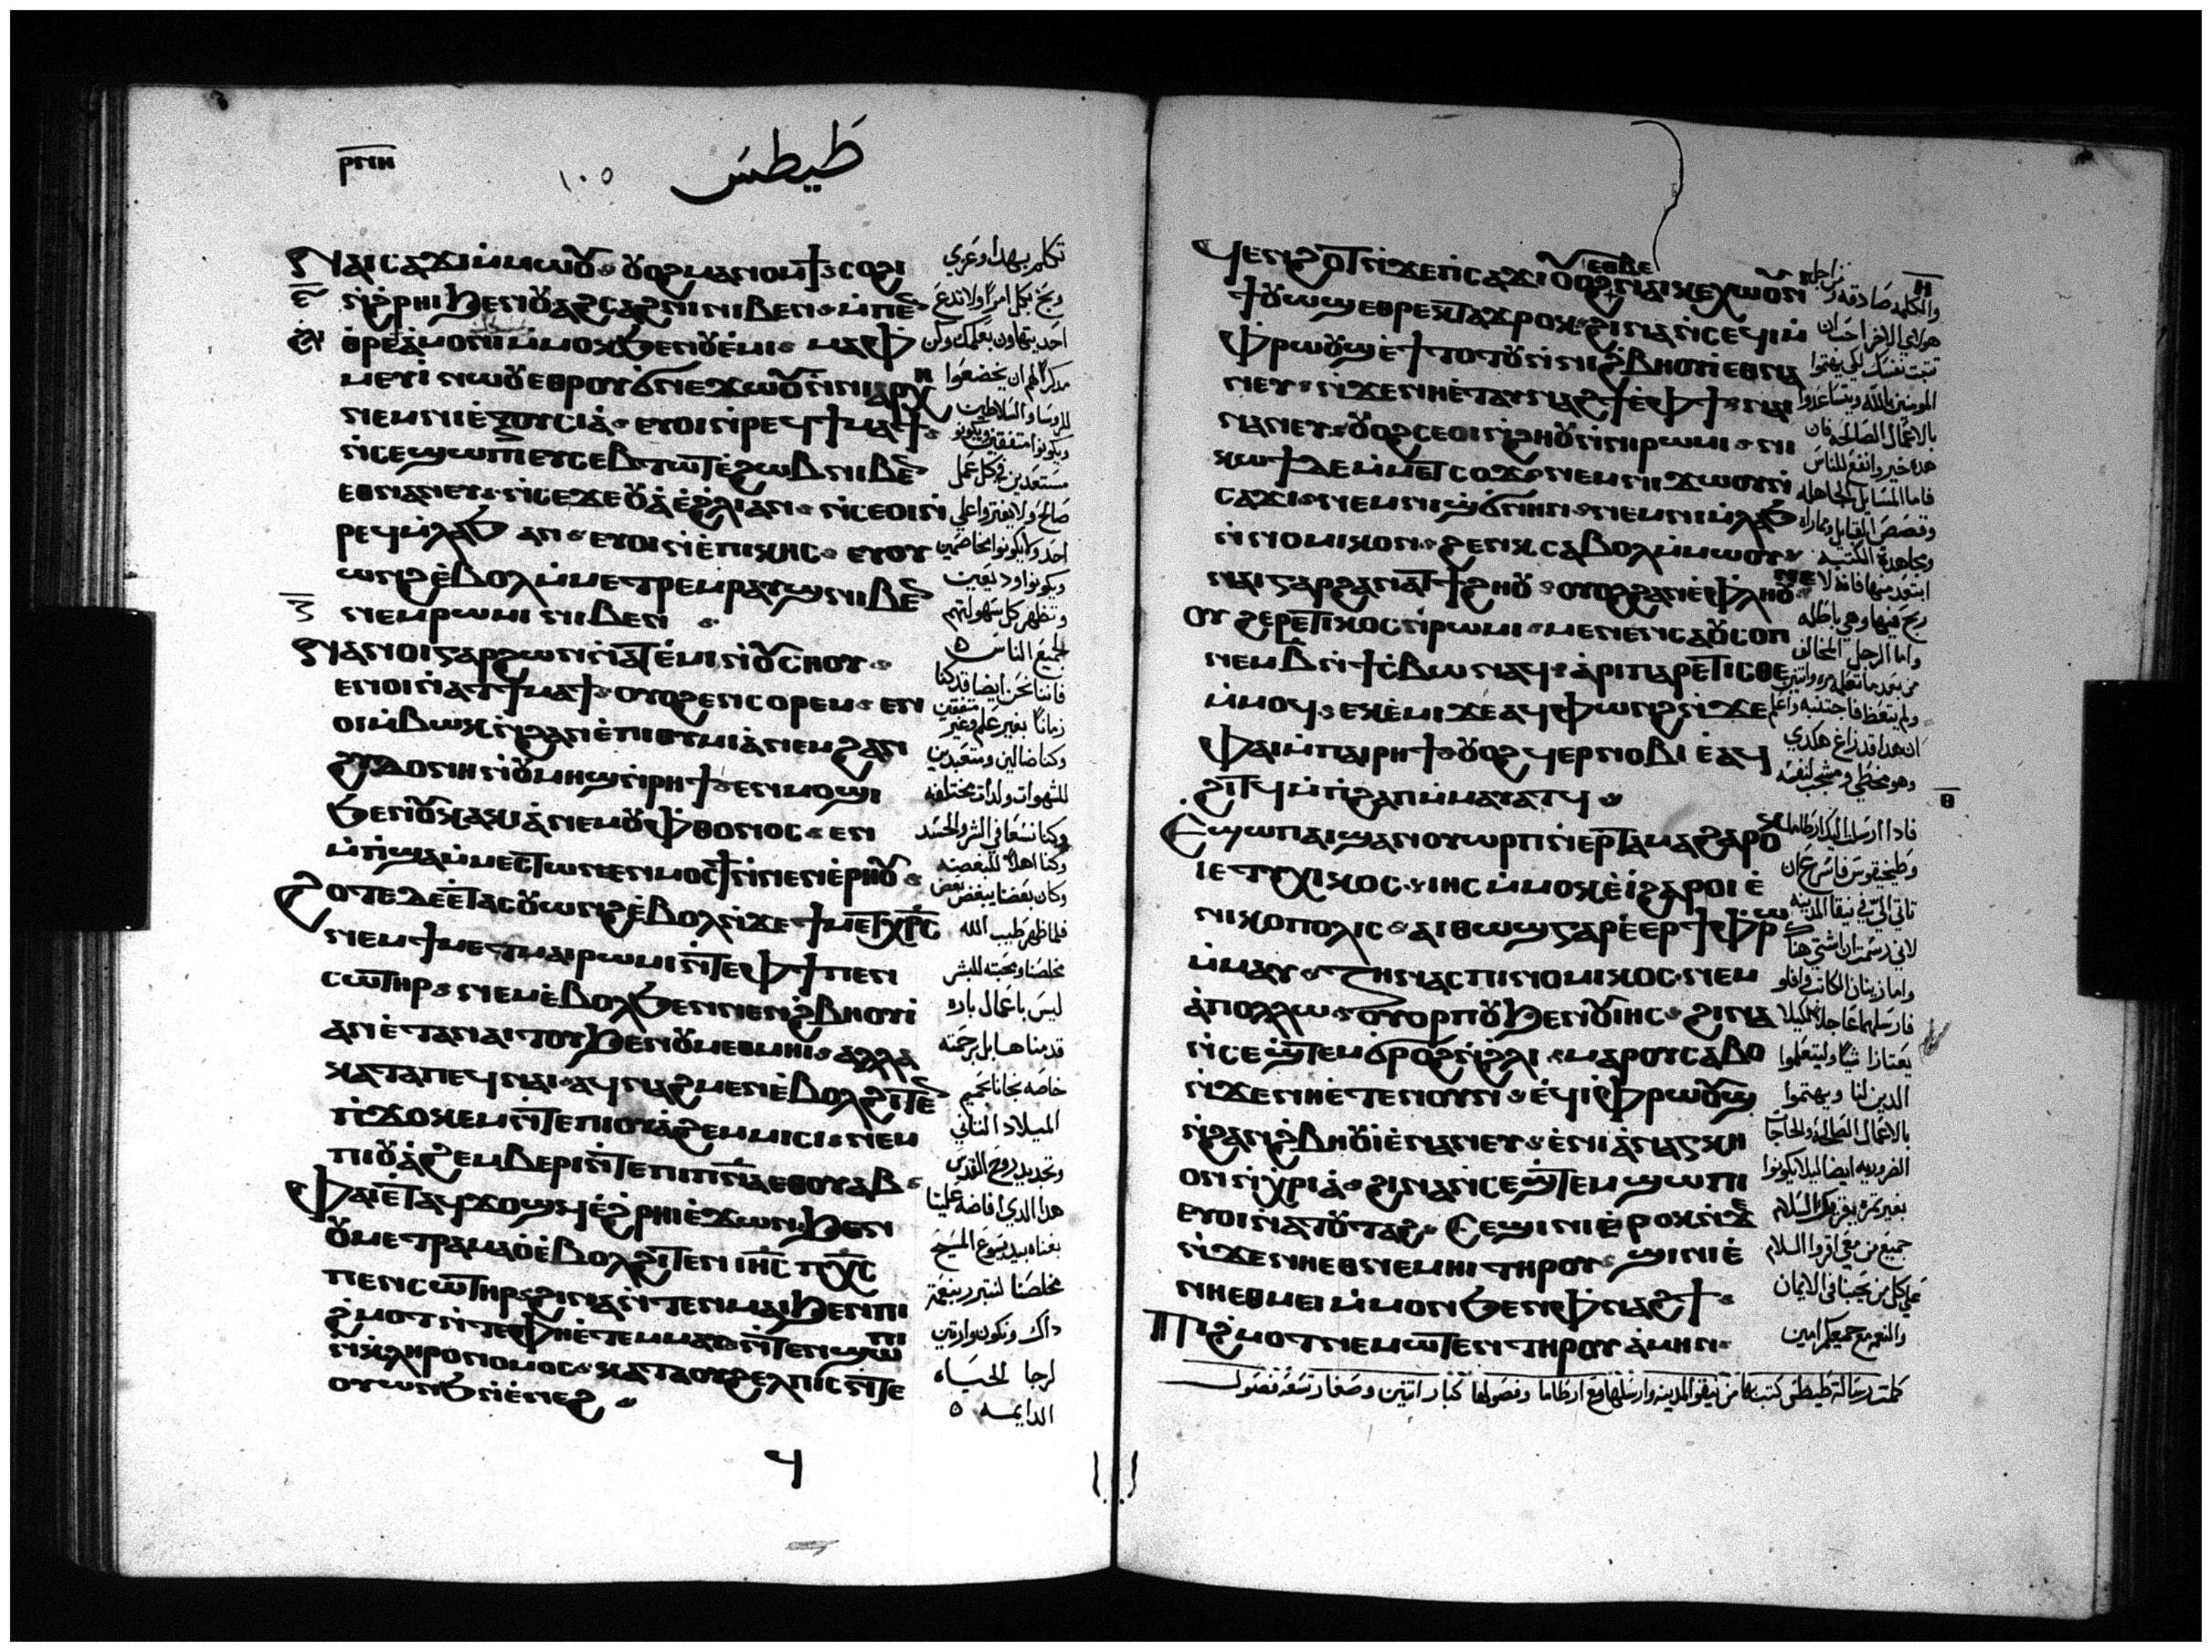 ⲣⲙⲏ
١٠٥
طيطس
ⲛⲁⲓ ⲥⲁϫⲓ ⲙ̀ⲙⲱⲟⲩ ⲟⲩⲟϩ ⲙⲁⲛⲟⲙϯ ⲥⲟϩⲓ
ⲛ̀ϩⲣⲏⲓ ϧⲉⲛ ⲟⲩⲁϩⲥⲁϩⲛⲓ ⲛⲓⲃⲉⲛ ⲙ̀ⲡⲉⲛ
ⲑⲣⲉ
ⲙⲉⲩⲓ ⲛⲱⲟⲩ ⲉⲑⲣⲟⲩϭⲛⲉϫⲱⲟⲩ ⲛ̀ⲛⲓⲁⲣⲭⲏ
ⲛⲉⲙ ⲛⲓⲉⲝⲟⲩⲥⲓⲁ̀ ⲉⲩⲟⲓ ⲛ̀ⲣⲉϥϯⲙⲁϯ
ⲛ̀ⲥⲉϣⲱⲡⲓ ⲉⲩⲥⲉⲃⲧⲱⲧ ⲉ̀ϩⲱⲃ ⲛⲓⲃⲉⲛ
ⲉⲑⲛⲁⲛⲉⲩ ⲛ̀ⲥⲉϫⲉⲟⲩⲁ̀ ⲉ̀ϩⲗⲓ ⲁⲛ ⲛ̀ⲥⲉⲟⲓ ⲛ̀
ⲣⲉϥⲙ̀ⲗⲁϧ ⲁⲛ ⲉⲩⲟⲓ ⲛ̀ⲉ̀ⲡⲓⲕⲏⲥ ⲉⲩⲟⲩ
ⲱⲛϩ ⲉ̀ⲃⲟⲗ ⲙ̀ⲙⲉⲧⲣⲉⲙⲣⲁⲩϣ ⲛⲓⲃⲉⲛ
ⲛⲉⲙ ⲣⲱⲙⲓ ⲛⲓⲃⲉⲛ
ⲛⲁⲛⲟⲓ ⲅⲁⲣ ϩⲱⲛ ⲛ̀ⲁⲧⲉ̀ⲙⲓ ⲛ̀ⲟⲩⲥⲏⲟⲩ
ⲉⲛⲟⲓ ⲛ̀ⲁⲧϯⲙⲁϯ ⲟⲩⲟϩ ⲉⲛⲥⲟⲣⲉⲙ ⲉⲛ
ⲟⲓ ⲙ̀ⲃⲱⲕ ⲛ̀ϩⲁⲛⲉ̀ⲡⲓⲑⲩⲙⲓⲁ̀ ⲛⲉⲙ ϩⲁⲛ
ϩⲩⲇⲟⲛⲏ ⲛ̀ⲟⲩⲙⲏϣ ⲛ̀ⲣⲏϯ ⲉⲛⲙⲟϣⲓ
ϧⲉⲛ ⲟⲩⲕⲁⲕⲓⲁ̀ ⲛⲉⲙ ⲟⲩⲫⲑⲟⲛⲟⲥ ⲉⲛ
ⲙ̀ⲡϣⲁ ⲙ̀ⲙⲉⲥⲧⲱⲛ ⲉⲛⲙⲟⲥϯ ⲛ̀ⲛⲉⲛⲉ̀ⲣⲏⲟⲩ
ϩⲟⲧⲉ ⲇⲉ ⲉ̀ⲧⲁⲥⲟⲩⲱⲛϩ ⲉ̀ⲃⲟⲗ ⲛ̀ϫⲉ ϯⲙⲉⲧⲭⲣⲥ
ⲛⲉⲙ ϯⲙⲉⲧⲙⲁⲓⲣⲱⲙⲓ ⲛ̀ⲧⲉ ⲫϯ ⲡⲉⲛ
ⲥⲱⲧⲏⲣ ⲛⲉⲙ ⲉ̀ⲃⲟⲗ ϧⲉⲛ ⲛⲉⲛϩ̀ⲃⲏⲟⲩⲓ̀
ⲁⲛ ⲉ̀ⲧⲁⲛⲁⲓⲧⲟⲩ ϧⲉⲛ ⲟⲩⲙⲉⲑⲙⲏⲓ ⲁⲗⲗⲁ
ⲕⲁⲧⲁ ⲡⲉϥⲛⲁⲓ ⲁϥⲛⲁϩⲙⲉⲛ ⲉ̀ⲃⲟⲗ ϩⲓⲧⲉⲛ
ⲡⲓϫⲱⲕⲉⲙ ⲛ̀ⲧⲉ ⲡⲓⲟⲩⲁ̀ϩⲉⲙⲙⲓⲥⲓ ⲛⲉⲙ
ⲡⲓⲟⲩⲁ̀ϩⲉⲙⲃⲉⲣⲓ ⲛ̀ⲧⲉ ⲡⲓⲡⲛⲁ ⲉⲑⲟⲩⲁⲃ
ⲫⲁⲓ ⲉ̀ⲧⲁϥϫⲟϣϥ ⲉ̀ϩ̀ⲣⲏⲓ ⲉ̀ϫⲱⲛ ϧⲉⲛ
ⲟⲩⲙⲉⲧⲣⲁⲙⲁⲟ̀ ⲉ̀ⲃⲟⲗ ϩⲓⲧⲉⲛ ⲓⲏⲥ ⲡⲭⲥ
ⲡⲉⲛⲥⲱⲧⲏⲣ ϩⲓⲛⲁ ⲛ̀ⲧⲉⲛⲙⲁⲓ ϧⲉⲛ ⲡⲓ
ϩ̀ⲙⲟⲧ ⲛ̀ⲧⲉ ⲫⲏⲉ̀ⲧⲉⲙⲙⲁⲩ ⲛ̀ⲧⲉⲛϣⲱⲡⲓ
ⲛ̀ⲕⲗⲏⲣⲟⲛⲟⲙⲟⲥ ⲕⲁⲧⲁ ⲟⲩϩⲉⲗⲡⲓⲥ ⲛ̀ⲧⲉ
ⲟⲩⲱⲛϧ ⲛ̀ⲉ̀ⲛⲉϩ
تكلم بهدا وعزي
وبخ بكل امر ولا تدع
احد يتهاون بعلمك وكن
مدكرا لهم ان يخضعوا
للروسا والسلاطين
ويكونوا متفقين ويكونوا
مستعدين في كل عمل
صالح ولا يفتروا علي
احد ولا يكونوا مخاصمين
ويكونوا وديعين
وتظهر كل سهولتهم
لجميع الناس
فاننا نحن ايضا قد كنا
زمانا بغير علم وغير متفقين
وكنا ضالين ومتعبدين
للشهوات ولدات مختلفه
وكنا نسعا في الشر والحسد
وكنا اهلا للبغضه
وكان بعضنا يبغض بعض
فلما ظهر طيب الله
مخلصنا ومحبته للبشر
ليس باعمال باره
قدمناها بل برحمته
خاصه نجانا بحميم
الميلاد التاني
وتجديد روح القدس
هدا الدي افاضه علينا
بغناه بيد يسوع المسيح
مخلصنا لنتبرر بنعمة
داك ونكون وارتين
لرجا الحياه
الدايمه
ϥⲉⲛϩⲟⲧ ⲛ̀ϫⲉ ⲡⲓⲥⲁϫⲓ ⲟⲩⲟϩ ⲉⲑⲃⲉ ⲛⲁⲓⲕⲉⲭⲱⲟⲩⲛⲓ
ϯⲟⲩⲱϣ ⲉⲑⲣⲉⲕⲧⲁϫⲣⲟⲕ ϩⲓⲛⲁ ⲛ̀ⲥⲉϥⲓⲙ
ⲫⲣⲱⲟⲩϣ ⲉ̀ϯⲧⲟⲧⲟⲩ ⲛ̀ⲛⲓϩⲃⲏⲟⲩⲓ ⲉⲑⲛⲁ
ⲛⲉⲩ ⲛ̀ϫⲉ ⲛⲏⲉ̀ⲧⲁⲩⲛⲁϩϯ ⲉ̀ⲫϯ ⲛⲁⲓ
ⲛⲁⲛⲉⲩ ⲟⲩⲟϩ ⲥⲉⲟⲓ ⲛ̀ϩⲏⲟⲩ ⲛ̀ⲛⲓⲣⲱⲙⲓ ⲛⲓ
ⲕⲱϯ ⲇⲉ ⲙ̀ⲙⲉⲧⲥⲟϫ ⲛⲉⲙ ⲛⲓϫⲱⲟⲩⲛ̀
ⲥⲁϫⲓ ⲛⲉⲙ ⲛⲓϣ̀ϭⲛⲏⲛ ⲛⲉⲙ ⲛⲓⲙ̀ⲗⲁϧ
ⲛ̀ⲛⲟⲙⲓⲕⲟⲛ ϩⲉⲛⲕ ⲥⲁⲃⲟⲗ ⲙ̀ⲙⲱⲟⲩ
ⲛⲁⲓ ⲅⲁⲣ ϩⲁⲛⲁⲧϯϩⲏⲟⲩ ⲟⲩⲟϩ ϩⲁⲛⲉ̀ⲫⲗⲏⲟⲩ ⲛⲉ
ⲟⲩϩⲉⲣⲉⲧⲓⲕⲟⲥ ⲛ̀ⲣⲱⲙⲓ ⲙⲉⲛⲉⲛⲥⲁ ⲟⲩⲥⲟⲡ
ⲛⲉⲙ ⲃ̅ ⲛ̀ϯⲥ̀ⲃⲱ ⲛⲁϥ ⲁ̀ⲣⲓⲡⲁⲣⲉⲧⲓⲥⲑⲉ
ⲙ̀ⲙⲟϥ ⲉⲕⲉ̀ⲙⲓ ϫⲉ ⲁϥⲫⲱⲛϩ ⲛ̀ϫⲉ
ⲫⲁⲓ ⲙ̀ⲡⲁⲓⲣⲏϯ ⲟⲩⲟϩ ϥⲉⲣⲛⲟⲃⲓ ⲉ̀ⲁϥ
ϩⲓⲧϥ ⲙ̀ⲡϩⲁⲡ ⲙ̀ⲙⲁⲩⲁⲧϥ
ⲉϣⲱⲡ ⲁⲓϣⲁⲛⲟⲩⲱⲣⲡ ⲛ̀ⲉⲣⲧⲁⲙⲁ ϩⲁⲣⲟⲕ
ⲓⲉ ⲧⲩⲭⲓⲕⲟⲥ ⲓⲏⲥ ⲙ̀ⲙⲟⲕ ⲉ̀ⲓ̀ ϩⲁⲣⲟⲓ ⲉ̀
ⲛⲓⲕⲟⲡⲟⲗⲓⲥ ⲁⲓⲑⲱϣ ⲅⲁⲣ ⲉ̀ⲉⲣϯⲫⲣⲱ
ⲙ̀ⲙⲁⲩ ⲍⲏⲛⲁⲥ ⲡⲓⲛⲟⲙⲓⲕⲟⲥ ⲛⲉⲙ
ⲁ̀ⲡⲟⲗⲗⲱ ⲟⲩⲟⲣⲡⲟⲩ ϧⲉⲛ ⲟⲩⲓⲏⲥ ϩⲓⲛⲁ
ⲛ̀ⲥⲉϣ̀ⲧⲉⲙϭⲣⲟϩ ⲛ̀ϩⲗⲓ ⲙⲁⲣⲟⲩⲥⲁⲃⲟ
ⲛ̀ϫⲉ ⲛⲏⲉ̀ⲧⲉⲛⲟⲩⲛ ⲉ̀ϥⲓⲫⲣⲱⲟⲩϣ
ⲛ̀ϩⲁⲛϩ̀ⲃⲏⲟⲩⲓ̀ ⲉ̀ⲛⲁⲛⲉⲩ ⲉ̀ⲛⲓⲁ̀ⲛⲁⲅⲕⲏ
ⲟⲛ ⲛ̀ⲭⲣⲓⲁ̀ ϩⲓⲛⲁ ⲛ̀ⲥⲉϣ̀ⲧⲉⲙϣⲱⲡⲓ
ⲉⲩⲟⲓ ⲛ̀ⲁⲧⲟⲩⲧⲁϩ ⲥⲉϣⲓⲛⲓ ⲉ̀ⲣⲟⲕ
ⲛ̀ϫⲉ ⲛⲏⲉⲑⲛⲉⲙⲏⲓ ⲧⲏⲣⲟⲩ ϣⲓⲛⲓ ⲉ̀
ⲛⲏⲉⲑⲙⲉⲓ ⲙ̀ⲙⲟⲛ ϧⲉⲛ ⲫⲛⲁϩϯ
ⲡⲓϩ̀ⲙⲟⲧ ⲛⲉⲙⲱⲧⲉⲛ ⲧⲏⲣⲟⲩ ⲁ̀ⲙⲏⲛ
والكلمه صادقه ومن اجل
هولاي الاخر احب ان
تتبت نفسك لكي يهتموا
المومنين بالله ويتساعدوا
بالاعمال الصالحه فان
هده خير وانفع للناس
فاما المسايل الجاهله
وقصص القبايل ومماراه
ومجاهدة الكتبه
ابتعد منها فانه لا
ربح فيها وهي باطله
واما الرجل المخالف
من بعد ما تعلمه مره واتنين
ولم يتعظ فاجتنبه واعلم
ان هدا قد زاغ هكدي
وهو مخطي وموجب لنفسه
فادا ارسلت اليك ارطاماس
وطيخيقوس فاسرع ان
تاتي الي في نيقا المدينه
لاني رسمت ان اشتي هناك
واما زينان الكاتب وافلو
فارسلهما عاجلا لكيلا
يعتازا شيا وليتعلموا
الدين لنا ويهتموا
بالاعمال الصالحه والحاجات
الضروريه ايضا ليلا يكونوا
بغير تمره يقريك السلام
جميع من معي اقروا السلام
علي كل من يحبنا في الايمان
والنعمه مع جميعكم امين
كملت رسالة طيطس كتب بها من نيقوا المدينه وارسلها مع ارطاما وفصولها كبار اتنين وصغار تسعه فصول